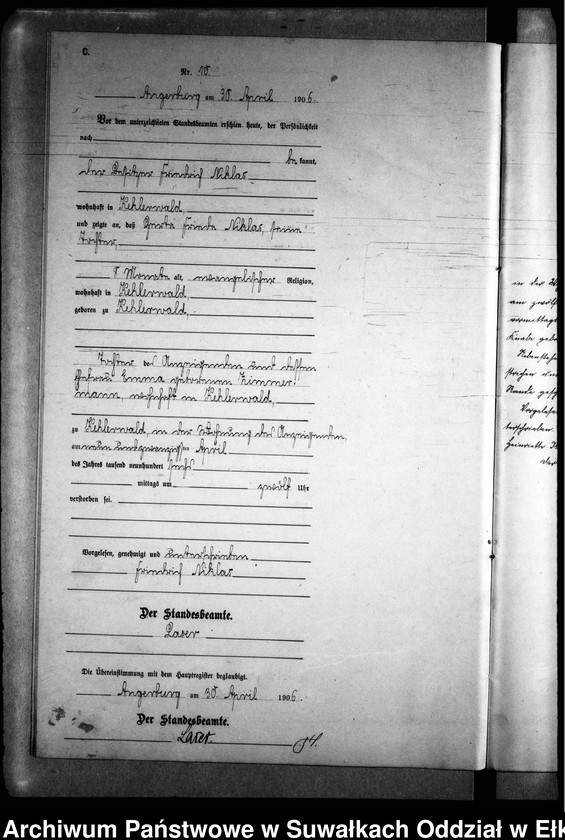 C.
Nr. 10.
Angerburg am 30. April 1906.
Vor dem unterzeichneten Standesbeamten erschien heute, der Persönlichkeit
nach
be kannt,
der Besitzer Friedrich Niklas
wohnhaft in Kehlerwald,
und zeigte an, daß Herta Frieda Niklas, seine
Tochter,
8 Monate alt, evangelischer Religion,
wohnhaft in Kehlerwald,
geboren zu Kehlerwald,
Tochter des Anzeigenden und dessen
Ehefrau Emma geborenen Zimmer-
mann, wohnhaft in Kehlerwald,
zu Kehlerwald, in der Wohnung des Anzeigenden,
am neunundzwanzigsten April
des Jahres tausend neunhundert sechs
mittags um zwölf Uhr
verstorben sei.
Vorgelesen, genehmigt und unterschrieben
Friedrich Niklas
Der Standesbeamte.
Laser
Die Übereinstimmung mit dem Hauptregister beglaubigt.
Angerburg am 30. April 1906.
Der Standesbeamte.
Laser.
in der
am zwölf
vormittags
Knabe
Vorgelesen
Archiwum Państwowe w Suwałkach Oddział w Ełk